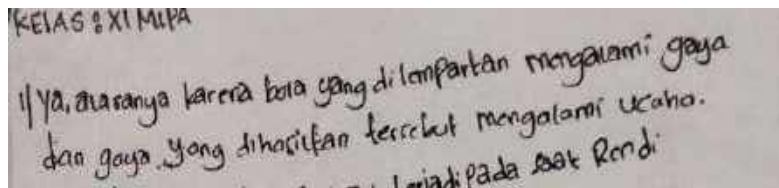 KELAS : XI MIPA
1) Ya, alasanya karena bola yang dilemparkan mengalami gaya
dan gaya yang dihasilkan tersebut mengalami usaha.
terjadi pada saat Rendi